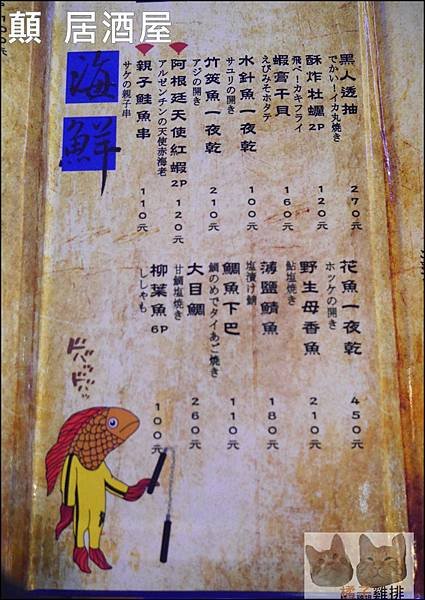 顛 居酒屋
海鮮
黑人透抽
でかい!イカ丸焼き
270元
酥炸牡蠣2P
飛べ!カキフライ
120元
蝦膏干貝
えびみそホタテ
160元
水針魚一夜乾
サユリの開き
100元
竹筴魚一夜乾
アジの開き
210元
阿根廷天使紅蝦2P
アルゼンチンの天使赤海老
120元
親子鮭魚串
サケの親子串
110元
花魚一夜乾
ホッケの開き
450元
野生母香魚
鮎塩焼き
210元
薄鹽鯖魚
塩漬け鯖
180元
鯛魚下巴
鯛のめでタイあご焼き
110元
大目鯛
甘鯛塩焼き
260元
柳葉魚6P
ししゃも
100元
橘子雞排